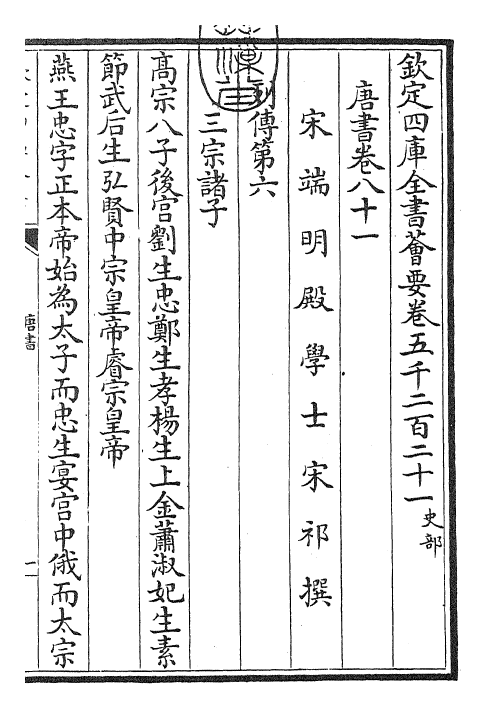 欽定四庫全書薈要卷五千二百二十一 史部
唐書卷八十一
宋端明殿學士宋祁撰
列傳第六
三宗諸子
高宗八子後宮劉生忠鄭生孝楊生上金蕭淑妃生素
節武后生弘賢中宗皇帝睿宗皇帝
燕王忠字正本帝始為太子而忠生宴宮中俄而太宗
唐書
一